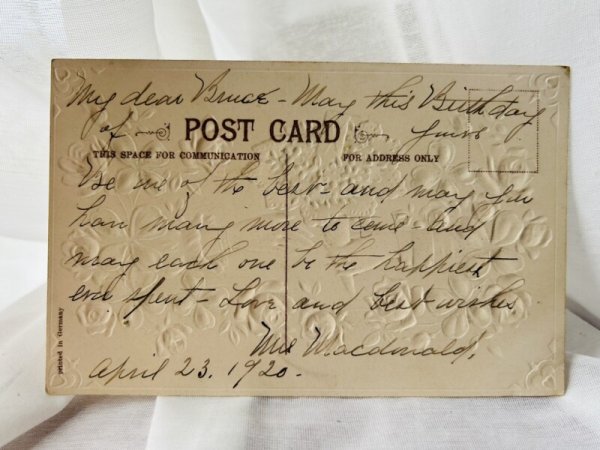 My dear Bruce - May this Birthday
of yours
POST CARD
THIS SPACE FOR COMMUNICATION
FOR ADDRESS ONLY
Be one of the best - and may you
have many more to come - and
may each one be the happiest
ever spent - Love and best wishes
Mrs Macdonald.
April 23. 1920.
printed in Germany